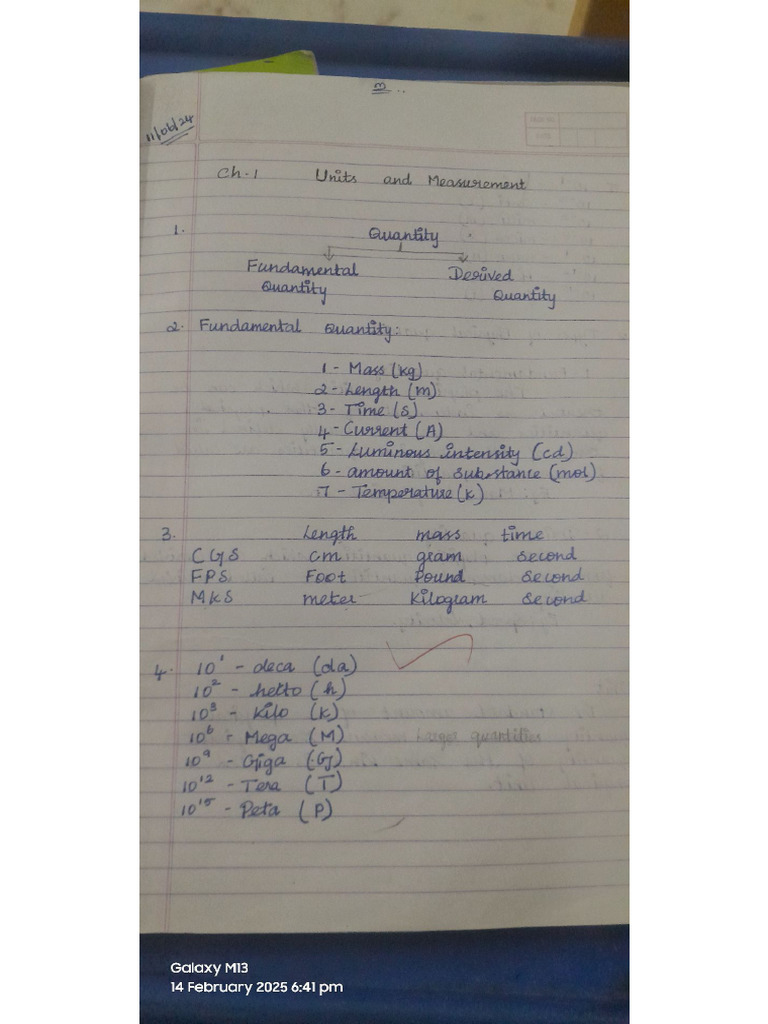 3
11/06/24
Ch-1 Units and Measurement
1. Quantity
Fundamental Quantity
Derived Quantity
2. Fundamental Quantity:
1 - Mass (kg)
2 - Length (m)
3 - Time (s)
4 - Current (A)
5 - Luminous intensity (cd)
6 - amount of substance (mol)
7 - Temperature (K)
3. Length mass time
CGS cm gram second
FPS Foot Pound Second
MKS meter Kilogram Second
4. 10¹ - deca (da)
10² - hetto (h)
10³ - Kilo (K)
10⁶ - Mega (M) Larger quantities
10⁹ - Giga (G)
10¹² - Tera (T)
10¹⁵ - Peta (P)
Galaxy M13
14 February 2025 6:41 pm